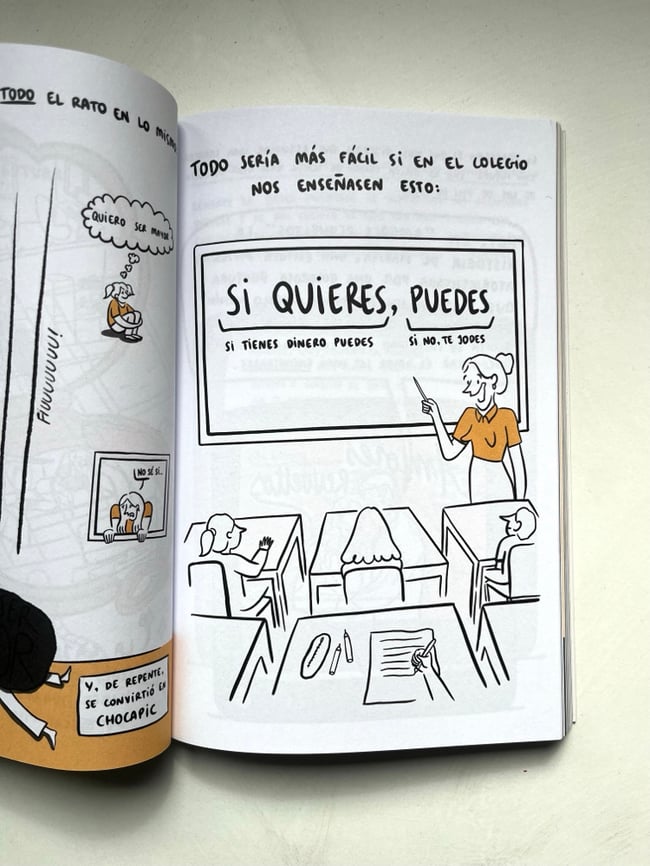 TODO EL RATO EN LO MISMO
QUIERO SER MAYOR
FIUUUUUUU!
NO SÉ SI...
Y, DE REPENTE,
SE CONVIRTIÓ EN
CHOCAPIC
TODO SERÍA MÁS FÁCIL SI EN EL COLEGIO
NOS ENSEÑASEN ESTO:
SI QUIERES, PUEDES
SI TIENES DINERO PUEDES SI NO, TE JODES